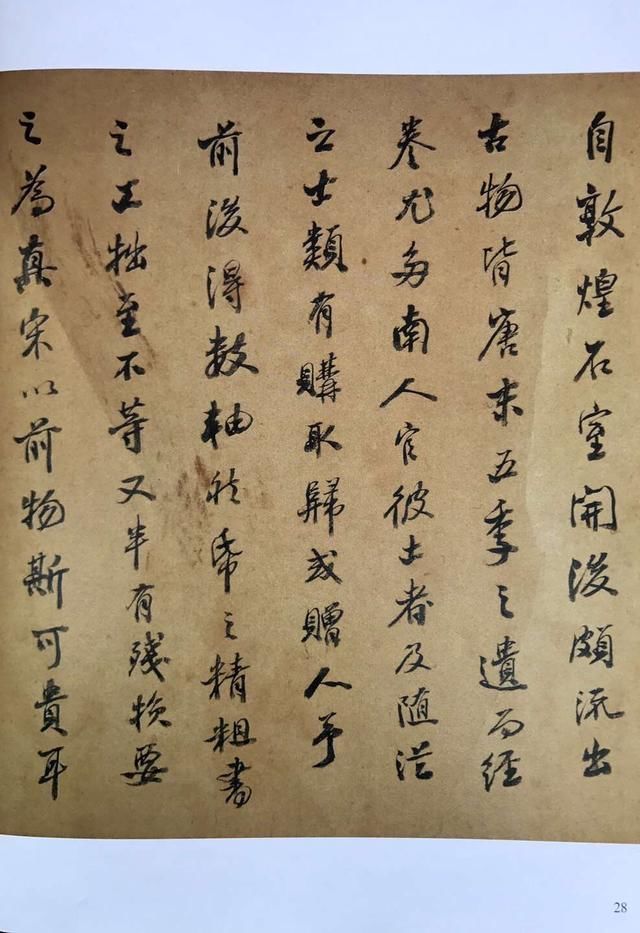 自敦煌石室開後頗流出
古物皆唐末五季之遺而經
卷尤多南人官彼土者及随從
之士類有購取歸或贈人予
前後得數軸然希之精粗書
之工拙至不等又半有殘損要
之為真宋以前物斯可貴耳
28